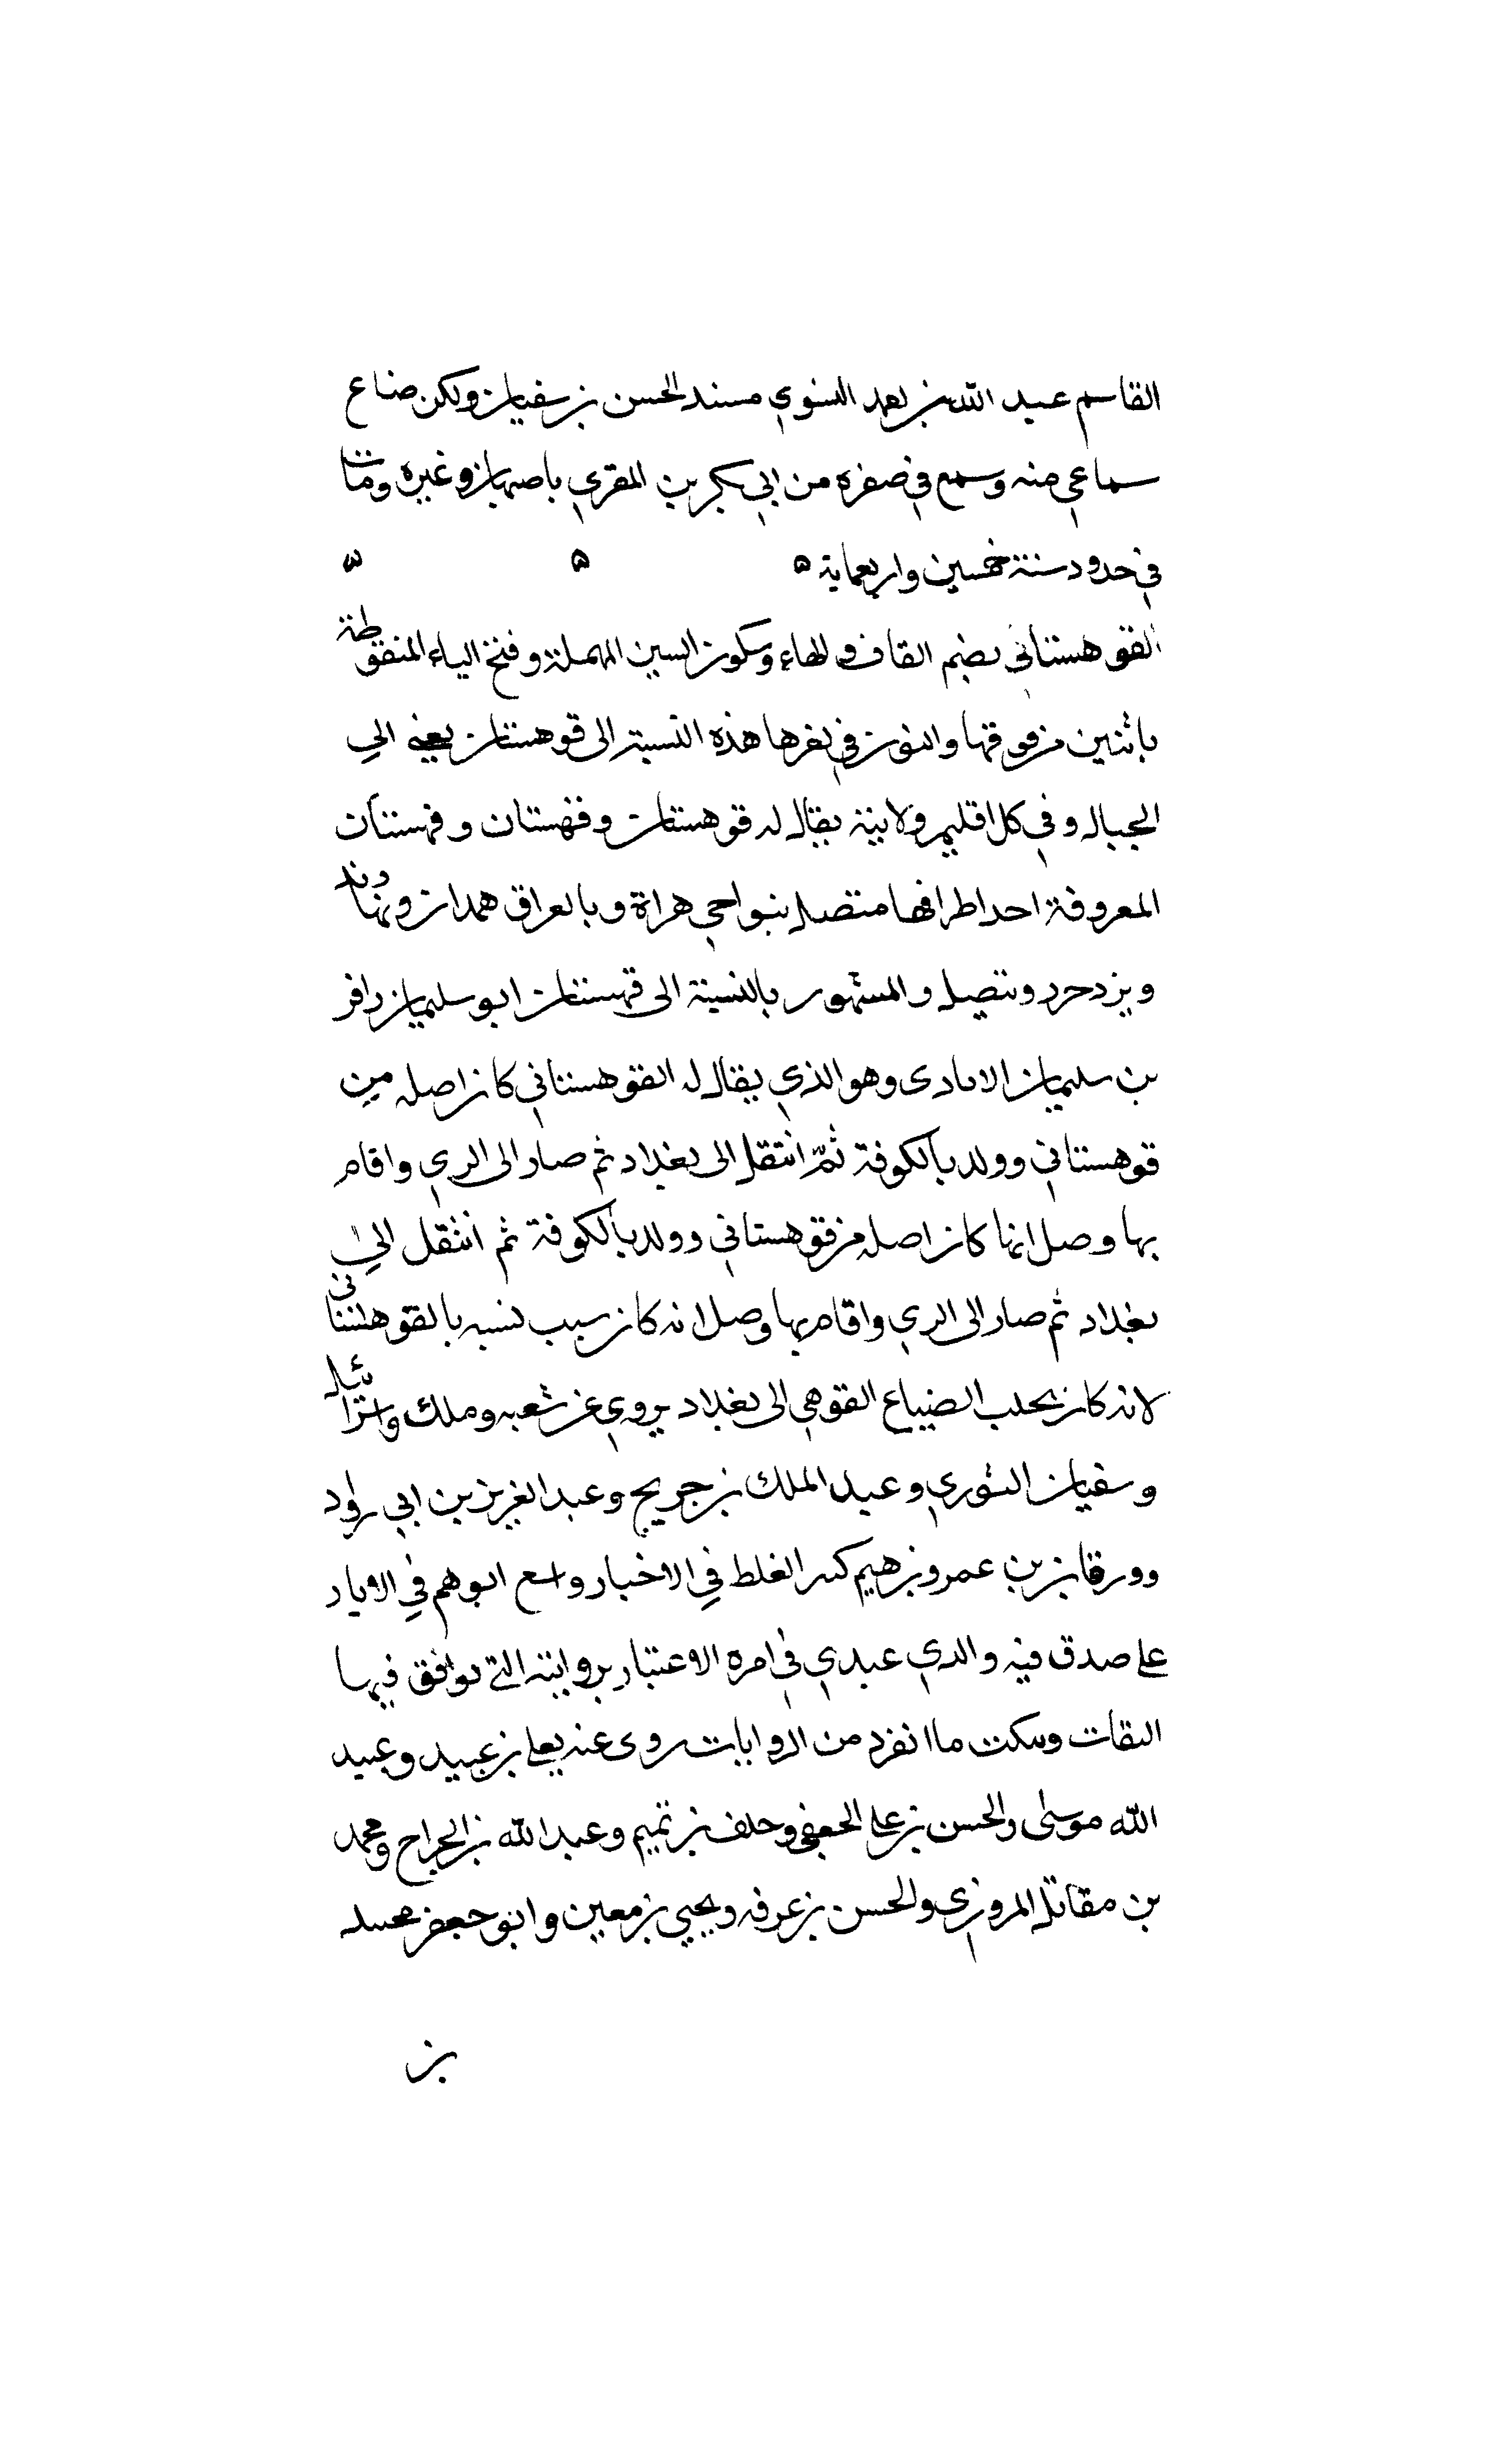 القاسم عبد الله بن لعهد النسوي مسند الحسن بن سفيان ولكن ضاع
سماعي منه وسمع في صغره من ابي بكر بن المقري باصبهان وغيره ومات
في حدود سنة خمسين واربعماية ه ه
القوهستاني بضم القاف والهاء وسكون السين المهملة وفتح الياء المنقوطة
باثنين من فوقها والنون في هذه النسبة الى قوهستان يعني الى
الجبال وفي كل اقليم ولاية يقال له قوهستان وقهستان وقهستان
المعروفة احد اطرافها متصل بنواحي هراة وبالعراق همدان ونهاوند
ويزدجرد وتتصل والمشهور بالنسبة الى قهستان ابو سليمان دافر
بن سليمان الايادى وهو الذي يقال له القوهستاني كان اصله من
قوهستاني وولد بالكوفة ثم انتقل الى بغداد ثم صار الى الري واقام
بها وصل انما كان اصله من قوهستاني وولد بالكوفة ثم انتقل الى
بغداد ثم صار الى الري واقام بها وصل انه كان سبب نسبه بالقوهستاني
لانه كان يجلب الضياع القوهي الى بغداد يروي عن شعبه وملك واسرائيل
وسفيان الثوري وعبد الملك بن جريج وعبد العزيز بن ابي راود
وورقا بن بن عمرو بن هيم كثير الغلط في الاخبار واسع ابوهم في الاياد
على صدق فيه والدي عبدي في امره الاعتبار بروايته التي توافق فيها
الثقات وسكت ما انفرد من الروايات روى عنه يعلى بن عبيد وعبيد
الله موسى والحسن بن علي الجعفي وخلف بن تميم وعبد الله بن الجراح ومحمد
بن مقاتل المروزي والحسن بن عرفه ويحيي بن معين وابو جعفر محمد
بن